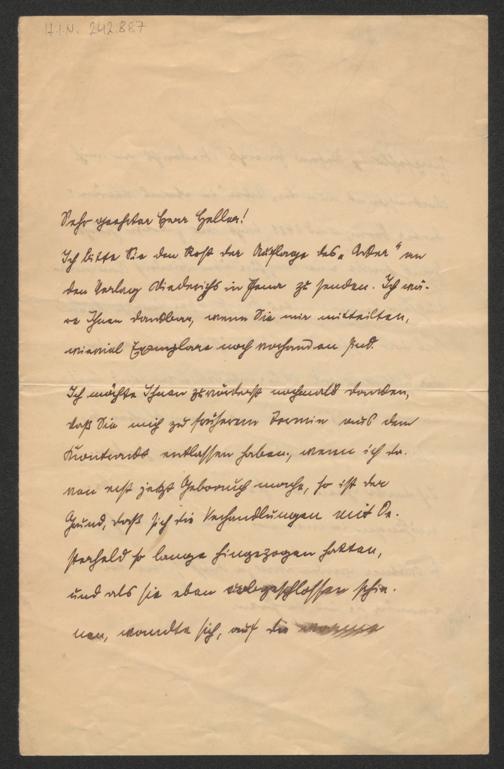 H.I.N. 242.887
Sehr geehrter Herr Heller!
Ich bitte Sie den Rest der Auflage des „Anker“ an
den Verlag Diederichs in Jena zu senden. Ich wä-
re Ihnen dankbar, wenn Sie mir mitteilten,
wieviel Exemplare noch vorhanden sind.
Ich möchte Ihnen zuvörderst nochmals danken,
daß Sie mich zu früherem Termin aus dem
Kontrakt entlassen haben, wenn ich da-
von erst jetzt Gebrauch mache, so ist der
Grund, daß sich die Verhandlungen mit Oe-
sterheld so lange hingezogen hatten,
und als sie eben abgeschlossen schie-
nen, wandte sich, auf die